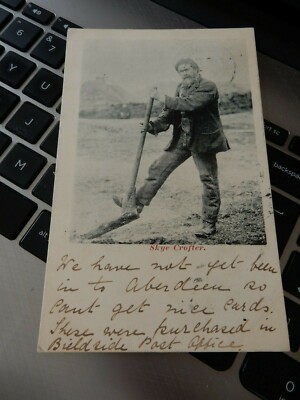 Skye Crofter.
We have not yet been
in to Aberdeen so
cant get nice cards.
These were purchased in
Bieldside Post Office
6
7
8
Y
U
I
H
J
K
N
M
backspace